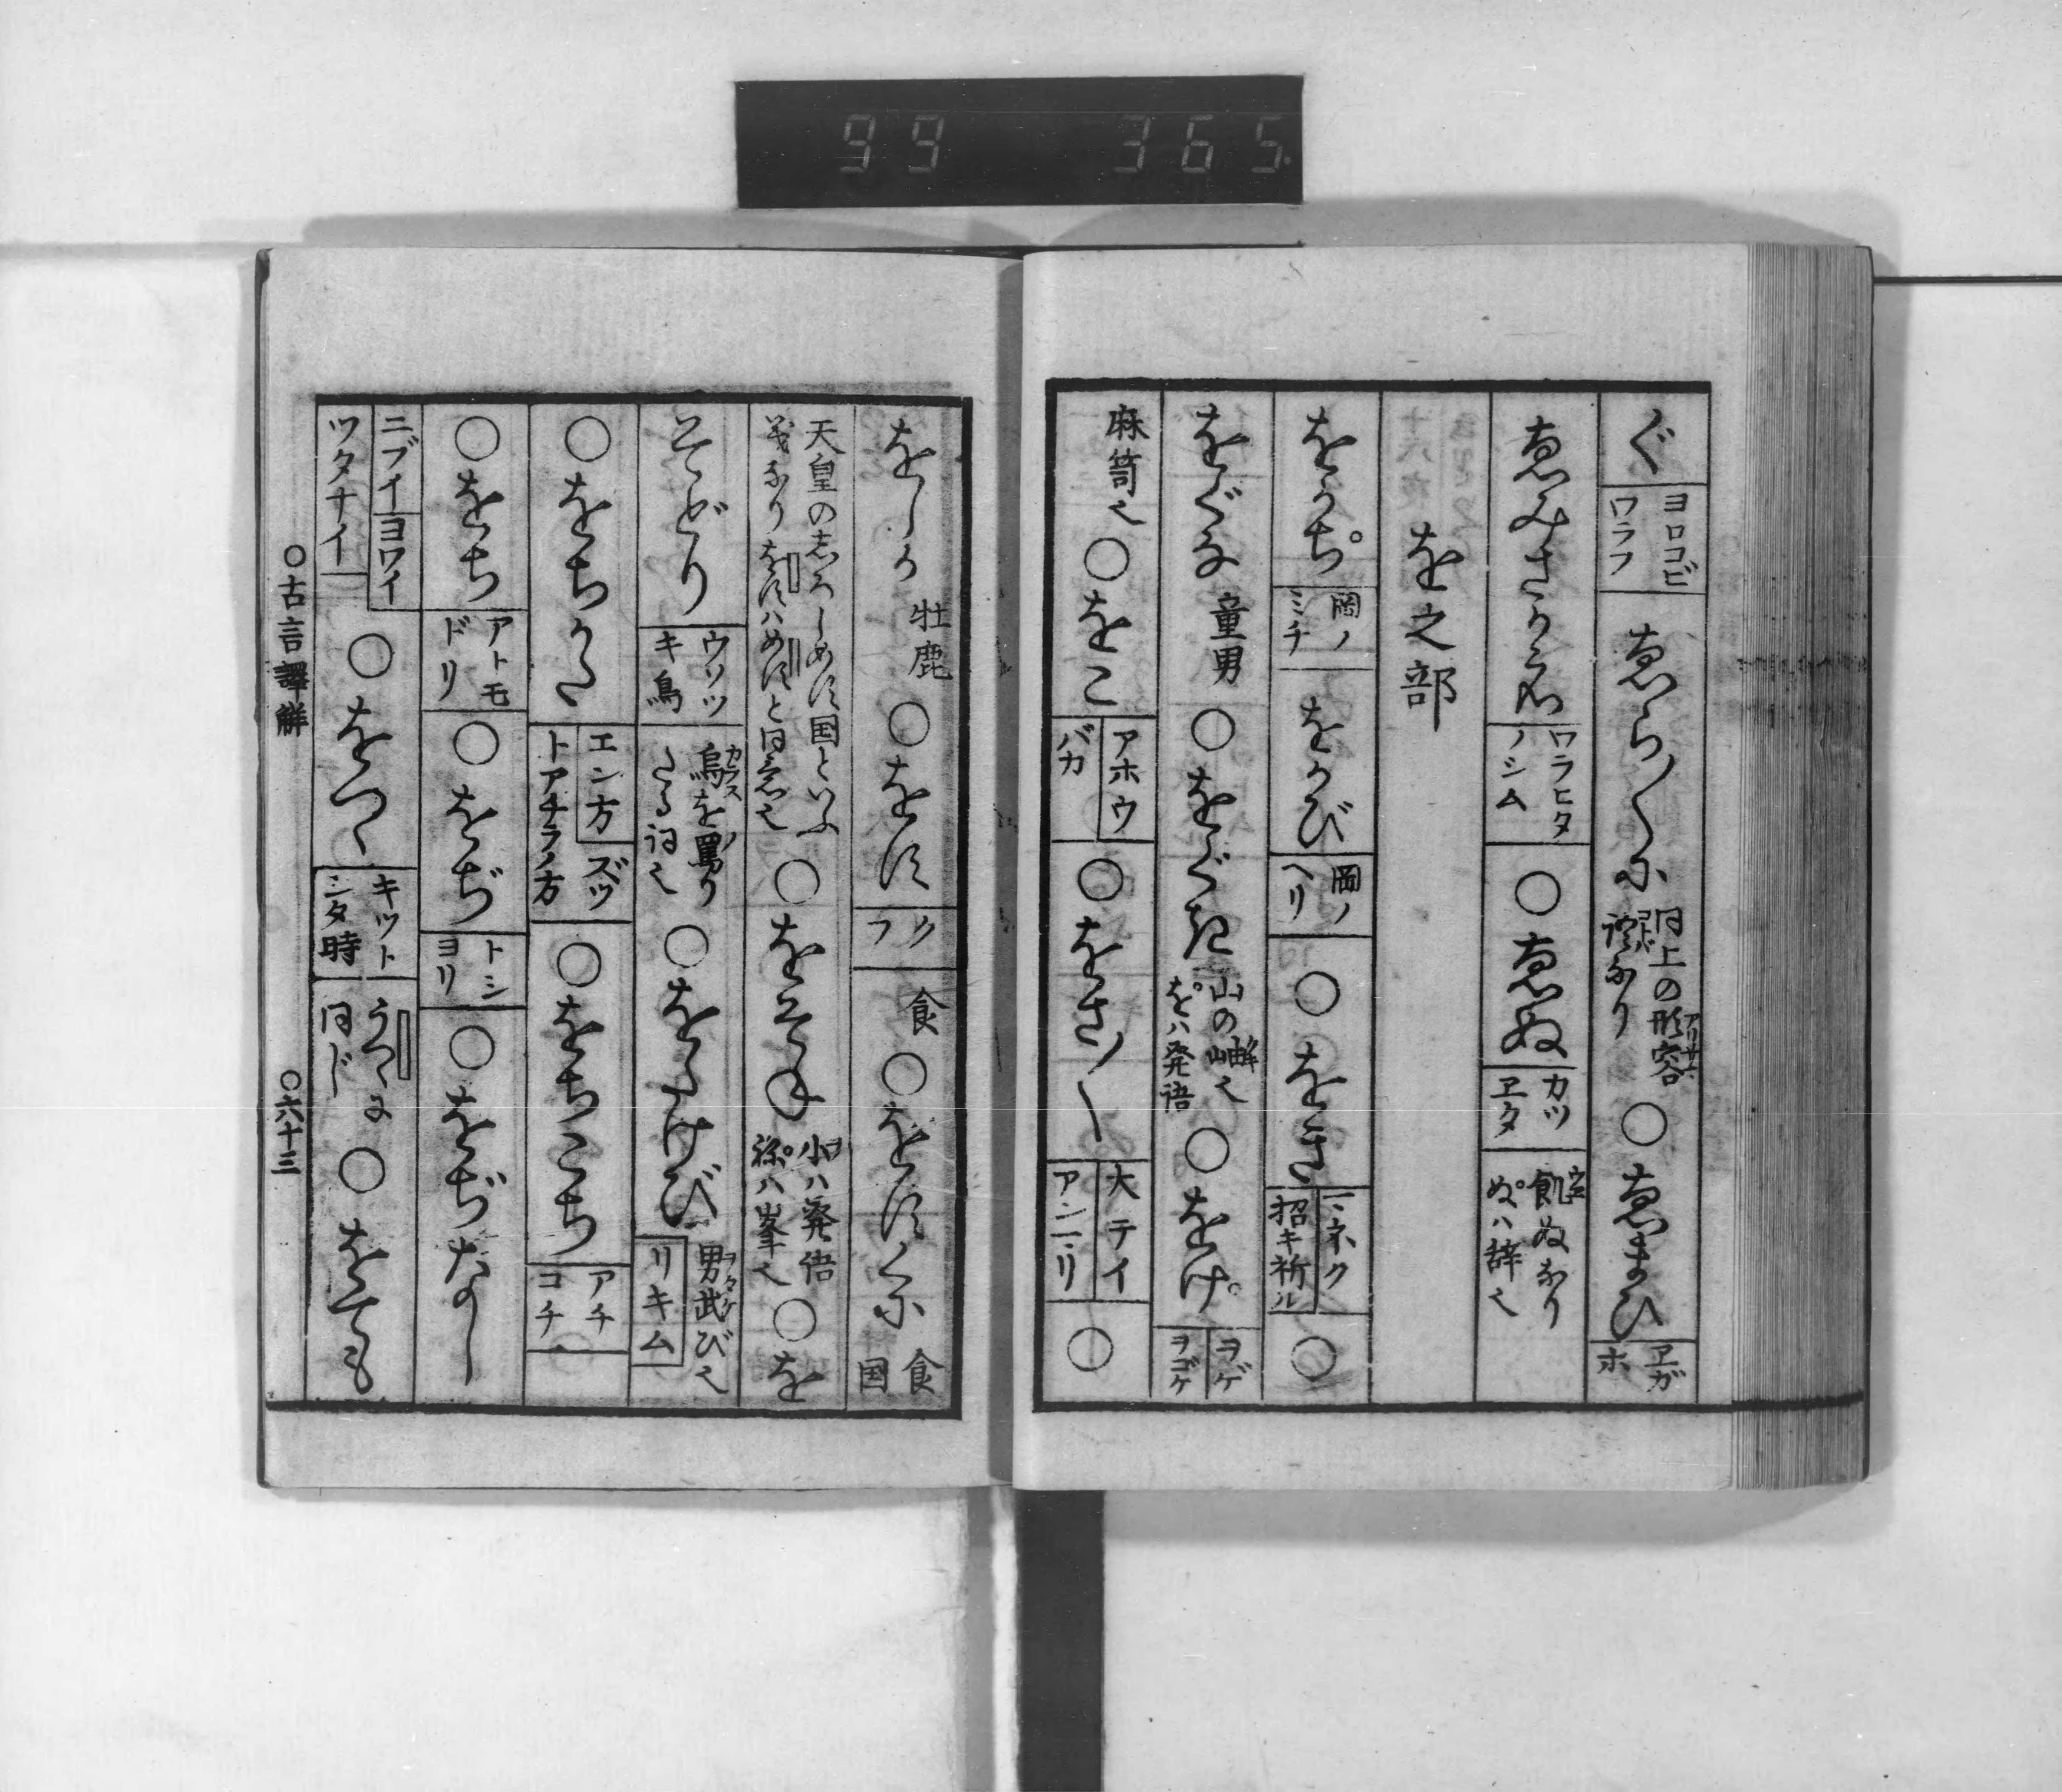 99 365
ぐ ヨロコビ ワラフ ゑら〳〵に 同上の形容アリサマ 詞コトバなり ○ゑまひ ヱガホ
ゑみさかえ ワラヒタノシム ○ゑぬ カツヱタ 飢ヱぬなり ぬハ辞也
を之部
をかち 岡ノミチ をかび 岡ノヘリ ○をき マネク 招キ祈ル ○
をぐな 童男 ○をぐき 山の岫也 をハ発語 ○をけ ヲゲ ヲゴケ
麻笥也 ○をこ アホウ バカ ○をさ〳〵 大テイ アンマリ ○
をしか 牡鹿 ○をす クフ 食 ○をすくに 食国
天皇の志ろしめす国といふ義なり をすハめすと同言也 ○をそね 小ヲハ発語 祢ハ峯也 ○を
そどり ウソツキ鳥 烏カラスを罵りたる詞也 ○をたけび 男武ヲタケび也 リキム
○をちかた エン方 ズツトアチラノ方 ○をちこち アチコチ
○をち アトモドリ ○をぢ トシヨリ ○をぢなし
ニブイ ヨワイ ツタナイ ○をつゝ キツトシタ時 うつゝに同じ ○をても
○古言譯解 ○六十三